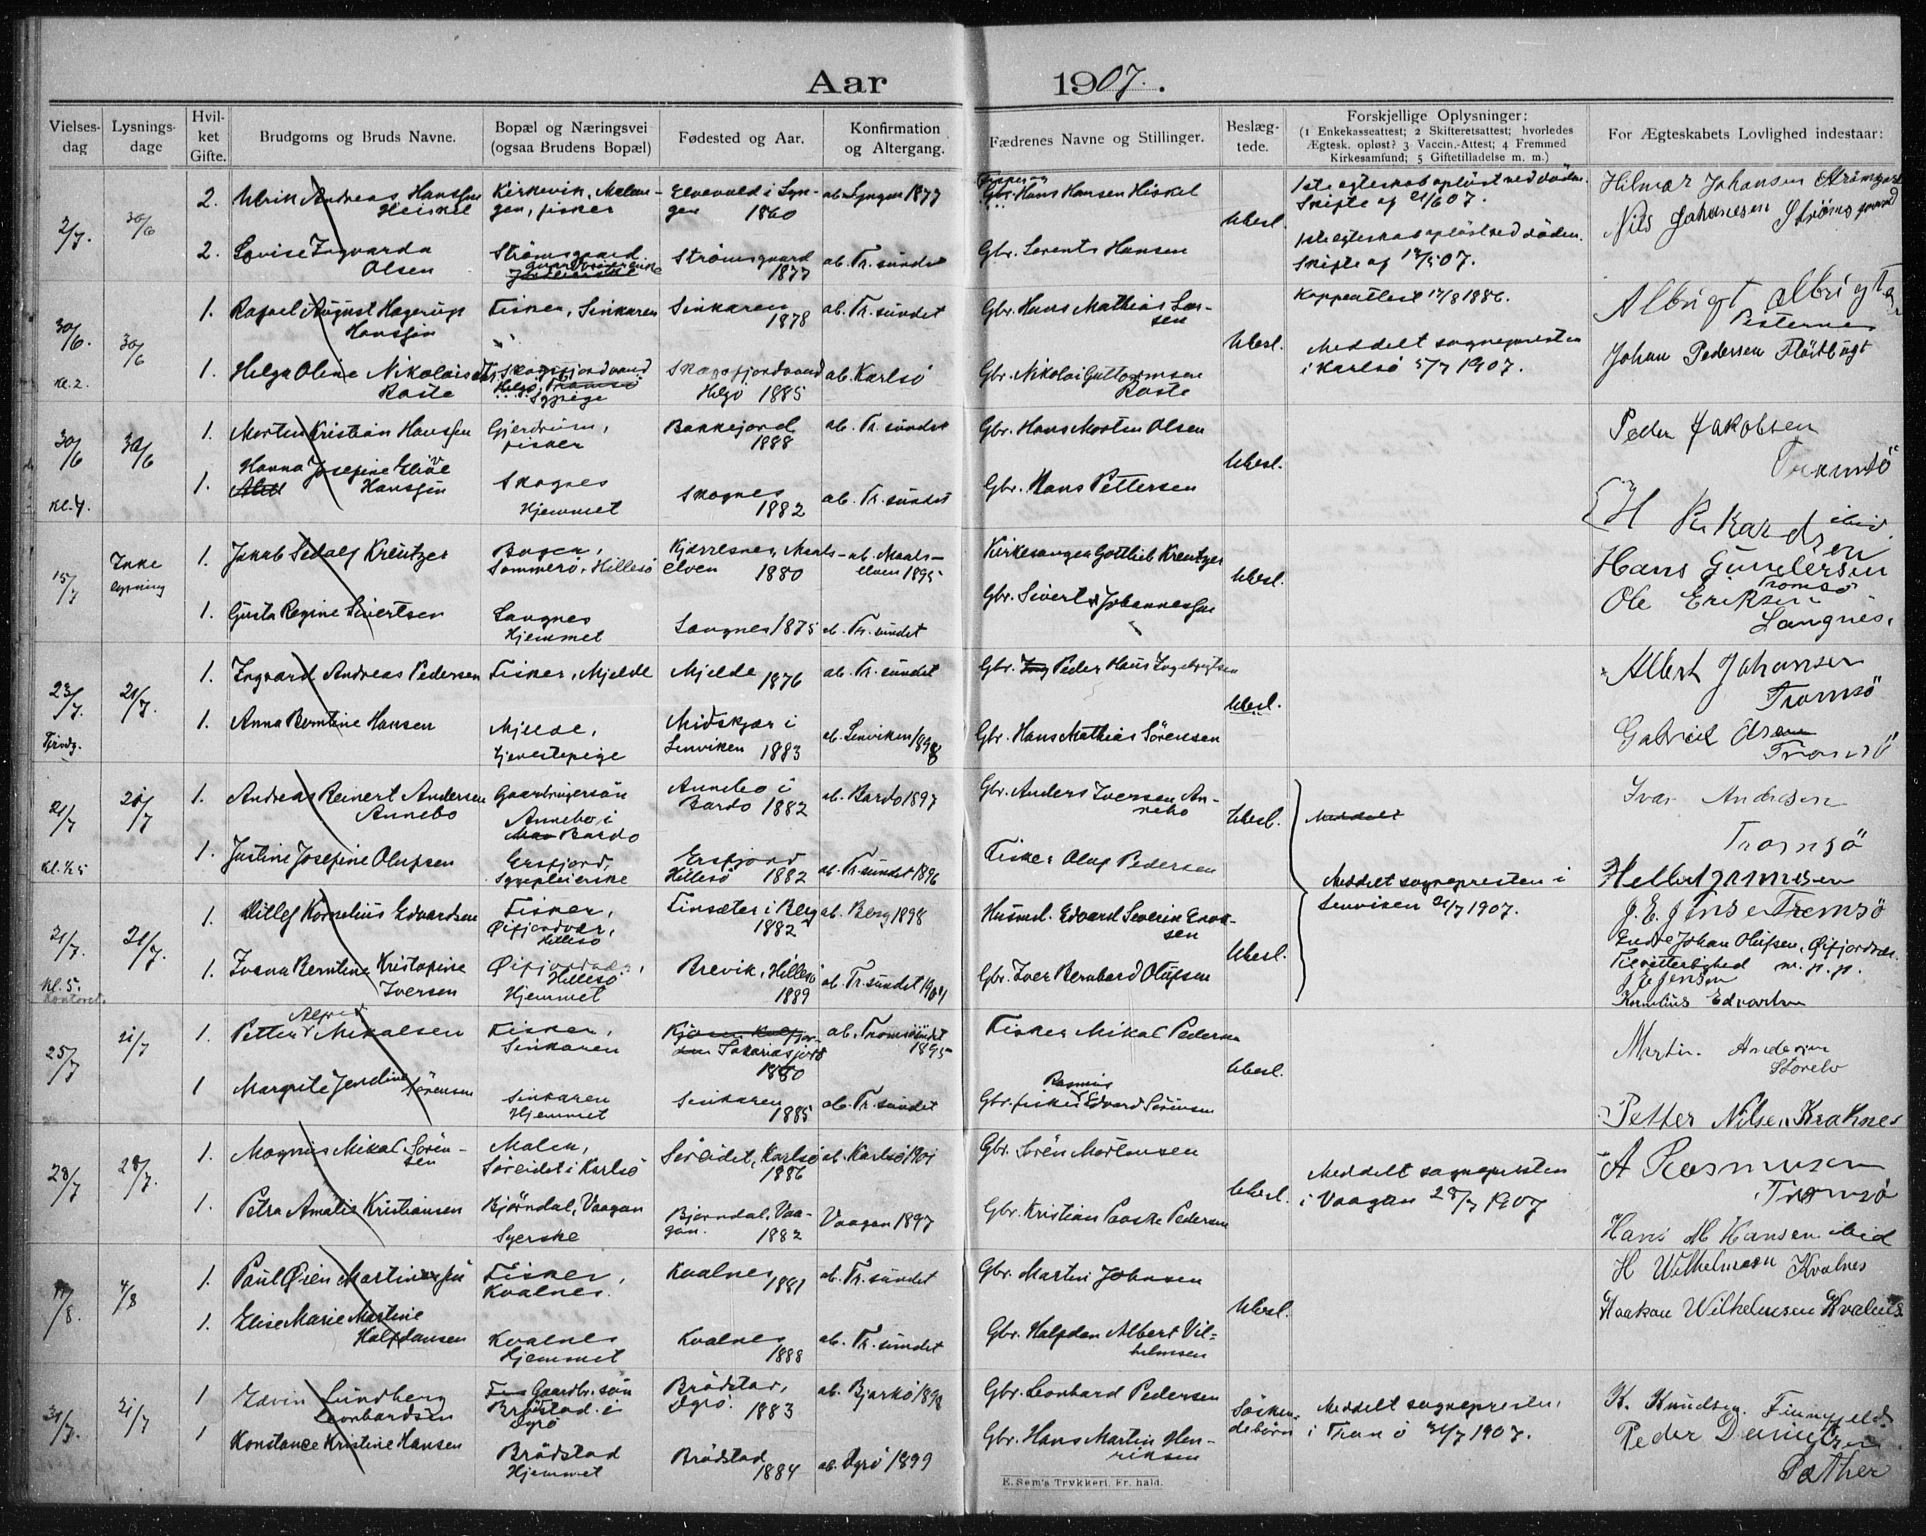 Aar 1907.
Vielses-dag
Lysnings-dage
Hvil-ket Gifte.
Brudgoms og Bruds Navne.
Bopæl og Næringsvei (ogsaa Brudens Bopæl)
Fødested og Aar.
Konfirmation og Altergang.
Fædrenes Navne og Stillinger.
Beslæg-tede.
Forskjellige Oplysninger:
(1 Enkekasseattest; 2 Skifteretsattest; hvorledes Ægtesk. opløst? 3 Vaccin.-Attest; 4 Fremmed Kirkesamfund; 5 Giftetilladelse m. m.)
For Ægteskabets Lovlighed indestaar:
2/7. 30/6 2. Ulrik Andreas Hanssen Heiskel
Kirkevik, Malangen, fisker
Elvevold i Lyngen 1860
ab. Lyngen 1877
Gbr. Hans Hansen Hiskel
Ubesl.
1ste egteskab opløst ved døden. Skifte af 21/6 07.
Hilmar Johansen Strømsgaard
Nils Johansen Strømsgaard
2. Lovise Ingvarda Olsen
Strømsgaard
Strømsgaard 1877
ab. Tr.sundet
Gbr. Lorents Hansen
1ste egteskab opløst ved døden. Skifte af 12/5 07.
30/6. kl. 2. 30/6 1. Rafael August Hagerup Hanssen
Fisker, Sinkaren
Sinkaren 1878
ab. Tr.sundet
Gbr. Hans Mathias Larsen
Ubesl.
Koppeattest 17/8 1886.
Albrigt Albrigtsen
1. Helga Oline Nikolaisen Raste
Skogsfjordvand Helgø
Sypige
Skogsfjordvand Helgø 1885
ab. Karlsø
Gbr. Nikolai Guttormsen Raste
Meddelt sognepresten i Karlsø 5/7 1907.
Johan Pedersen Fløitbugt
30/6 kl. 4. 30/6 1. Morten Kristian Hanssen
Gjerdrum, fisker
Bakkejord 1888
ab. Tr.sundet
Gbr. Hans Morten Olsen
Ubesl.
Peder Jakobsen Tromsö
1. Hanna Josefine Hanssen
Skognes Hjemmet
Skognes 1882
ab. Tr.sundet
Gbr. Hans Pettersen
H Rikardsen ibid.
15/7 Inke lysning 1. Jakob Sedolf Kreutzer
Sommerø, Hillesø
Kjærresnes, Maalselven 1880
ab. Maalselven 1895
Kirkesanger Gottlieb Kreutzer
Ubesl.
Hans Gundersen Tromsö
1. Gusta Regine Sivertsen
Langnes Hjemmet
Langnes 1875
ab. Tr.sundet
Gbr. Sivert Johannessen
Ole Eriksen Langnes.
23/7. 21/7. 1. Ingvard Andreas Pedersen
Fisker, Mjelde
Mjelde 1876
ab. Tr.sundet
Gbr. Peder Hans Ingebrigtsen
Ubesl.
Albert Johansen Tromsö
1. Anna Berntine Hansen
Mjelde, tjenestepige
Midskjær i Lenviken 1883
ab. Lenviken 1898
Gbr. Hans Mathias Sørensen
Gabriel Olsen Tromsö
21/7 kl. 1/2 5 21/7 1. Andreas Reinert Andersen Annebo
Gaardbrugersøn Annebo i Bardo
Annebo i Bardo 1882
ab. Bardo 1897
Gbr. Anders Iversen Annebo
Ubesl.
Meddelt
Ivar Andresen Tromsö
1. Justine Josefine Olufsen
Ersfjord, Sygepleierske
Ersfjord Hillesø 1882
ab. Tr.sundet 1896
Fisker Oluf Pedersen
Meddelt sognepresten i Lenviken 21/7 1907.
21/7. kl. 5. Kontoret. 21/7. 1. Ditlef Kornelius Edvardsen
Fisker, Øifjordvær, Hillesø
Finsæter i Berg 1882
ab. Berg 1898
Husmd. Edvard Severin Enoksen
Ubesl.
J. E. Jensen Tromsö
Endre Johan Olufsen, Øifjordvær.
1. Ivana Berntine Kristofine Iversen
Hillesø Hjemmet
Brevik, Hillesø 1889
ab. Tr.sundet 1904
Gbr. Iver Bernhard Olufsen
Tilvitterlighed m. p. p.
J E Jensen
Kornelius Edvardsen
25/7 21/7 1. Petter Alfred Mikalsen
Fisker, Sinkaren
Sakariasfjord 1880
ab. Tromsøsundet 1895
Fisker Mikal Pedersen
Ubesl.
Martin Andersen Storelv
1 Margrete Jendine Sørensen
Sinkaren Hjemmet
Sinkaren 1885
ab. Tr.sundet
Gbr. fisker Rasmus Edvard Sørensen
Petter Nilsen Kraknes
28/7 28/7. 1. Magnus Mikal Sørensen
Maler, Søreidet i Karlsø
Søreidet, Karlsø 1886
ab. Karlsø 1901
Gbr. Søren Mortensen
Ubesl.
Meddelt sognepresten i Vaagan 28/7 1907
A Rasmusen Tromsö
1. Petra Amalie Kristiansen
Bjørndal, Vaagan Syerske
Bjørndal, Vaagan. 1882
Vaagan 1897
Gbr. Kristian Paaske Pedersen
Hans M Hansen ibid
11/8. 4/8 1. Paul Øien Martinussen
Fisker, Kvalnes.
Kvalnes 1881
ab. Tr.sundet
Gbr. Martin Johnsen
Ubesl.
H Wilhelmsen Kvalnes
1. Elise Marie Martine Halfdansen
Kvalnes Hjemmet
Kvalnes 1888
ab. Tr.sundet
Gbr. Halfdan Albert Vilhelmsen
Haakon Wilhelmsen Kvalnes
31/7. 21/7 1 Edvin Lundberg Leonhardsen
Gaardbr. søn Brøstad i Dyrø
Brødstad, Dyrø. 1883
ab. Bjarkø 1898
Gbr. Leonhard Pedersen
Søskendebørn
Meddelt sognepresten i Tranø 31/7 1907.
K. Knudsen Finnfjeld
1 Konstance Kristine Hansen
Brødstad Hjemmet
Brødstad 1884
ab. Dyrø 1899
Gbr. Hans Martin Henriksen
Peder Danielsen
E. Sem's Trykkeri. Fr. hald.